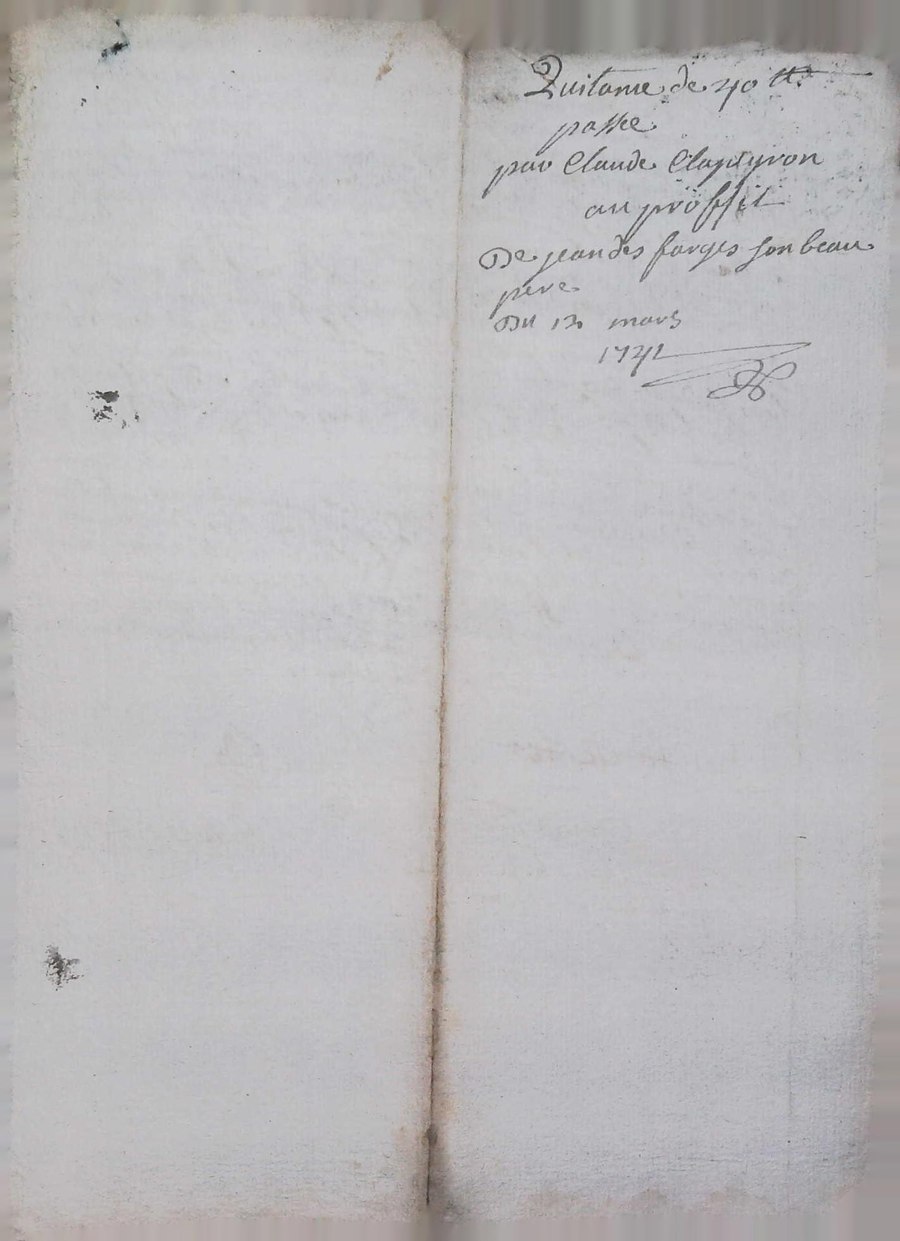 Quitance de 40 ₶
passée
par Claude Clapeyron
au proffit
De jean des farges son beau
pere
Du 12 mars
1741